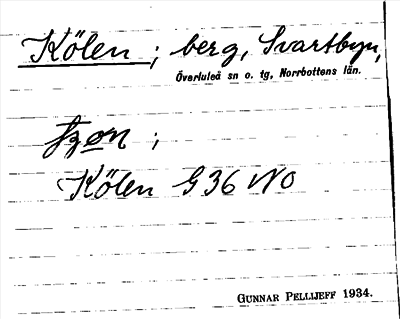 Kölen ; berg, Svartbyn,
Överluleå sn o. tg, Norrbottens län.
Kölen G 36 NO
GUNNAR PELLIJEFF 1934.